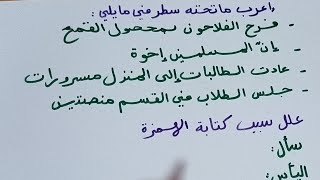 وأعرب ماتحته سطر في مايلي:
- فرح الفلاحون بمحصول القمح
- إنّ المسلمين إخوة
- عادت الطالبات إلى المنزل مسرورات
- جلس الطلاب في القسم منصتين
علل سبب كتابة الهمزة
سأل:
اليأس: